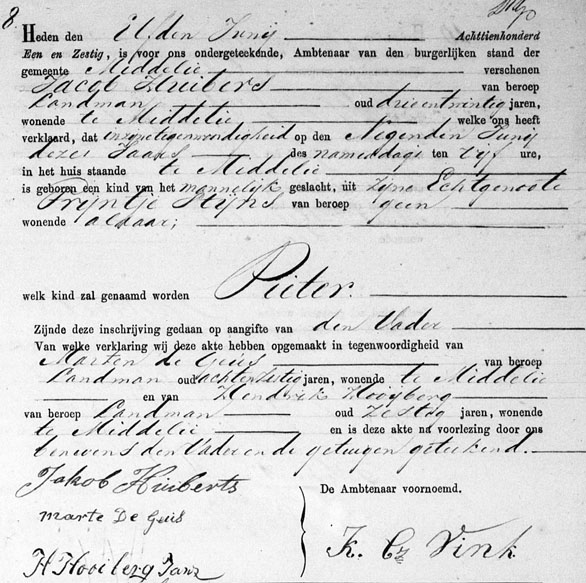 8.
Heden den Elfden Junij Achttienhonderd
Een en Zestig, is voor ons ondergeteekende, Ambtenaar van den burgerlijken stand der
gemeente Middelie verschenen
Jacob Huibers van beroep
Landman oud drieentwintig jaren,
wonende te Middelie welke ons heeft
verklaard, dat in zijne tegenwoordigheid op den Negenden Junij
dezes Jaars des namiddags ten vijf ure,
in het huis staande te Middelie
is geboren een kind van het mannelijk geslacht, uit zijne Echtgenoote
Trijntje Stijns van beroep geen
wonende aldaar;
welk kind zal genaamd worden Pieter.
Zijnde deze inschrijving gedaan op aangifte van den Vader
Van welke verklaring wij deze akte hebben opgemaakt in tegenwoordigheid van
Marten de Geus van beroep
Landman oud achtenzestig jaren, wonende te Middelie
en van Hendrik Hooijberg
van beroep Landman oud Zestig jaren, wonende
te Middelie en is deze akte na voorlezing door ons
benevens den Vader en de getuigen geteekend.
Jakob Huiberts
De Ambtenaar voornoemd.
Marte De Geus
K. Cz Vink.
H Hooiberg Janz